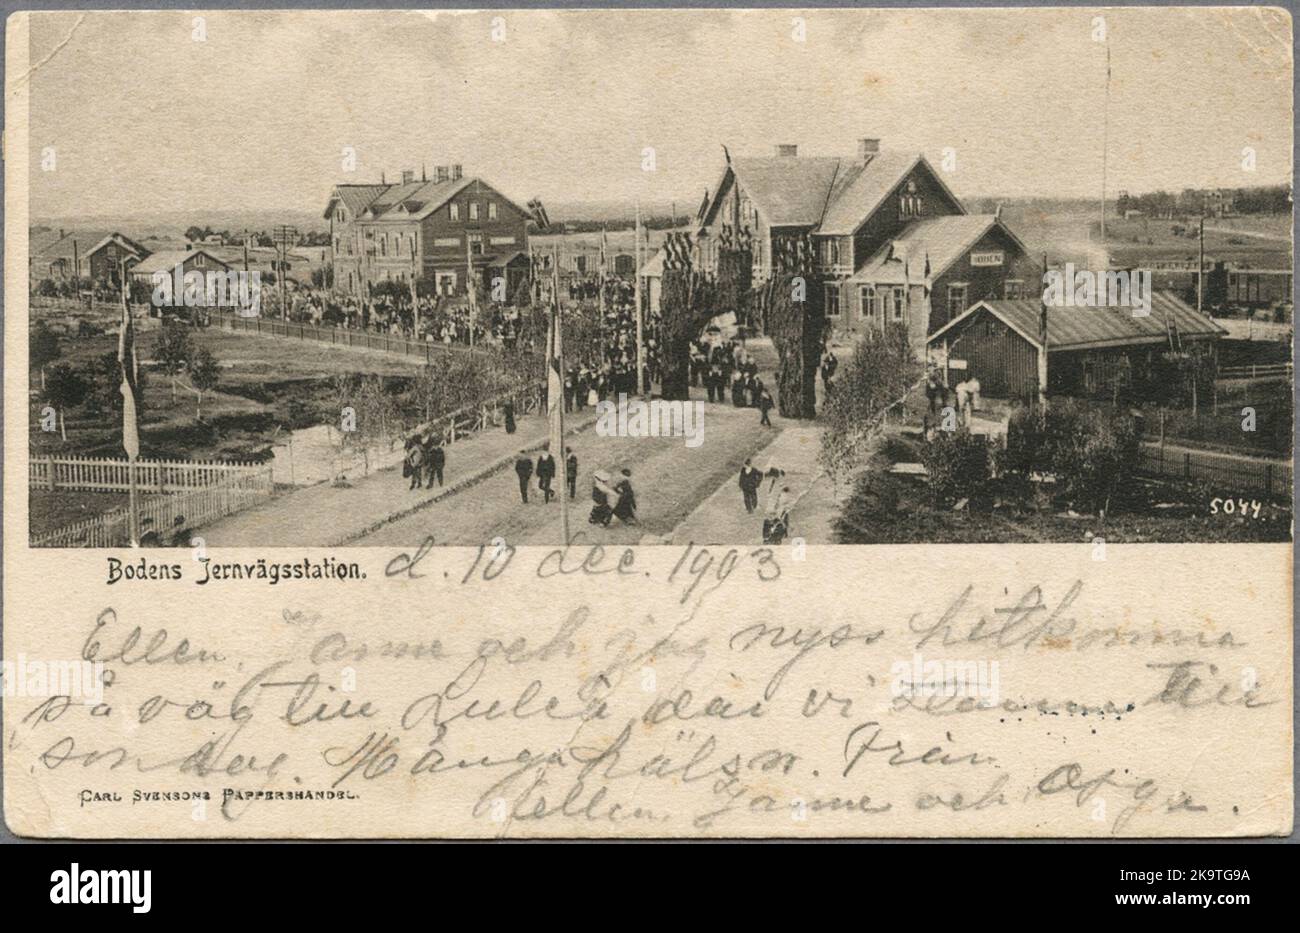 BODEN
5044.
Bodens Jernvägsstation. d. 10 dec. 1903
Ellen, Janne och jag nyss hitkomna
på väg till Luleå där vi stanna till
sondag. Många hälsn. Från
Ellen, Janne och
CARL SVENSONS PAPPERSHANDEL.
a alamy
alamy
Image ID: 2K9TG9A
www.alamy.com